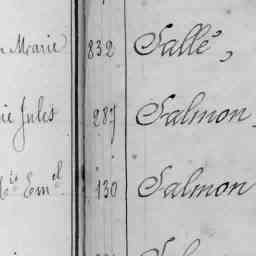 Marie 832 Sallé,
Jules 287 Salmon,
Emel 130 Salmon